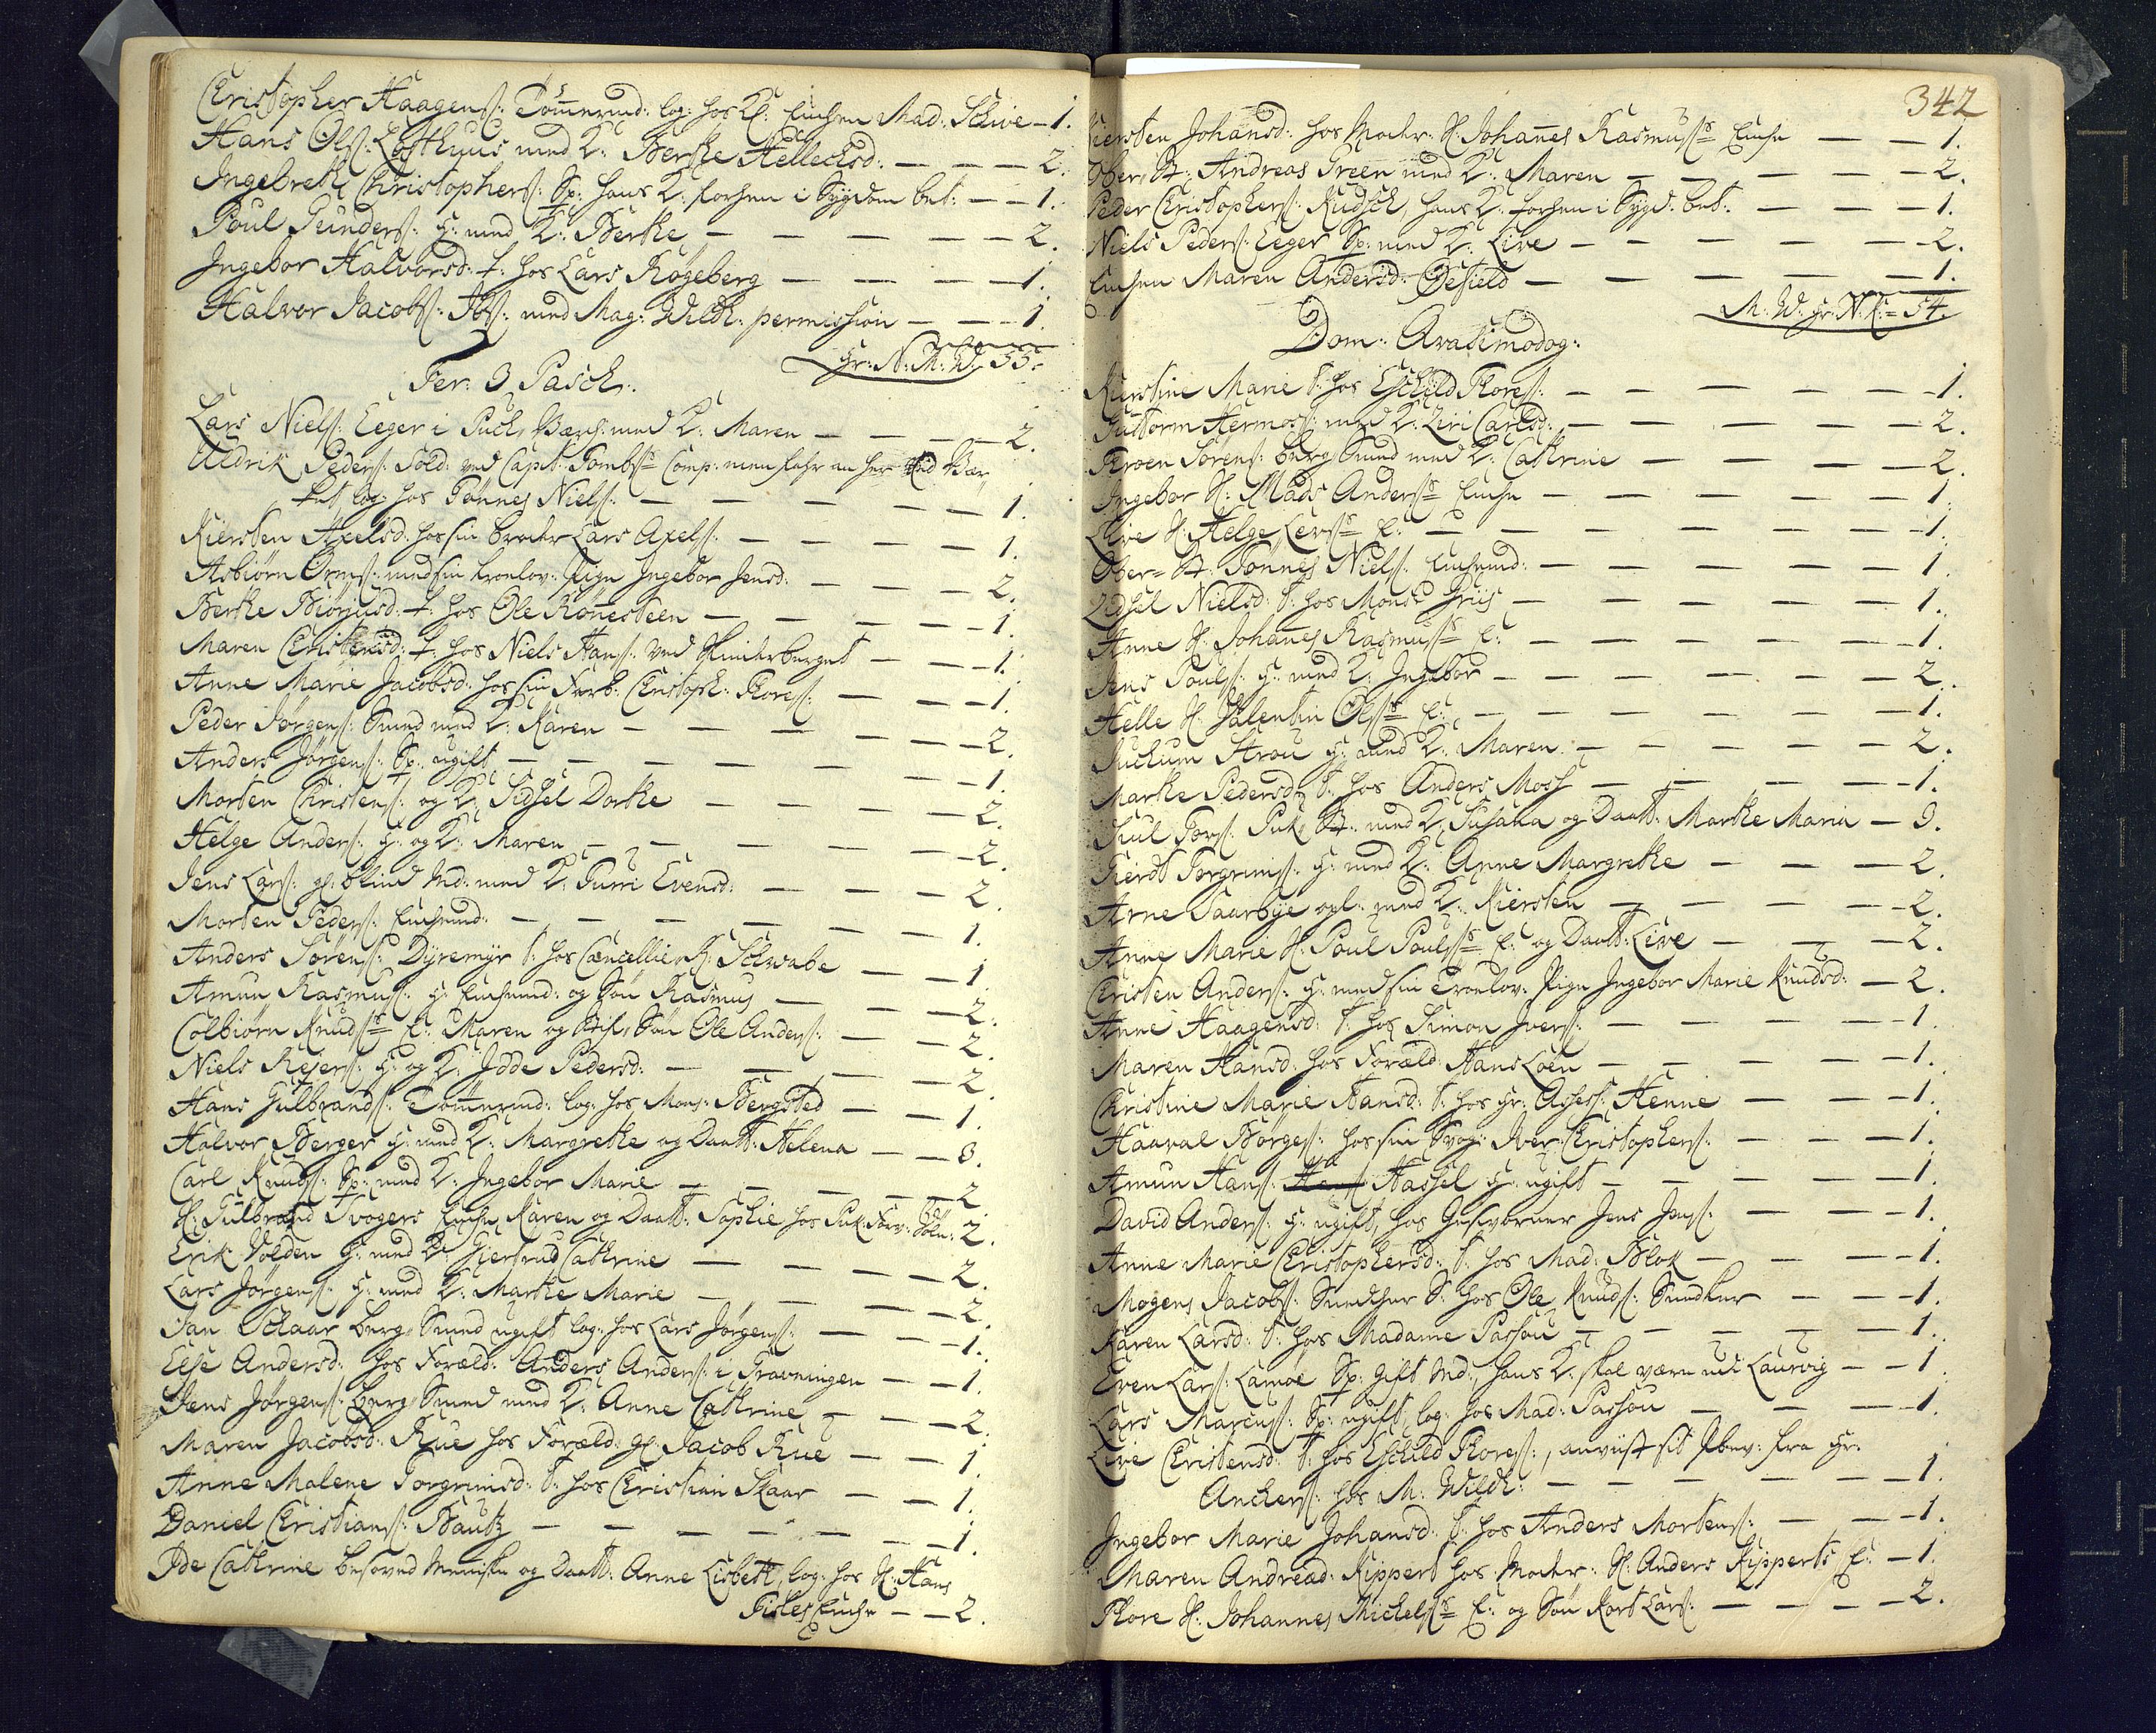 Christopher Haagens: Tømermd: log: hos Sl: Enchen Mad: Schive — 1.
Hans Ols: Løsthuus med K: Berthe Hellechsd: — — — 2.
Ingebreth Christophers: Sp: hans K: forhen i Sygdom bet: — — 1.
Poul Gunders: G: med K: Berthe — — — — — 2.
Ingebor Halvorsd: t: hos Lars Røgeberg — — — — 1.
Halvor Jacobs: Ibs: med Mag: Wildh: permission — — — 1.
Hr: N: M: W: 55.
Fer: 3 Pasch:
Lars Niels: Eeger i Puch, Bærs: med K: Maren — — — — 2.
Uldrik Peders: Sold: ved Capt: Tombs Comp: men
log: hos Tønnes Niels: — — — — — 1.
Kiersten Axelsd: hos sin broder Lars Axels: — — — — 1.
Asbiørn Orms: med sin trolov: Pige Ingebor Jensd: — — — 2.
Berthe Biørnsd: t: hos Ole Rønesteen — — — — 1.
Maren Christensd: t: hos Niels Hans: ved — — 1.
Anne Marie Jacobsd: hos sin Farb: Christoph: Thores: — — — 1.
Peder Jørgens: Smed med K: Karen — — — — — 2.
Anders Jørgens: Sp: ugift — — — — — — 1.
Morten Christens: og K: Sidsel Dorthe — — — — 2.
Helge Anders: G: og K: Maren — — — — — 2.
Jens Lars: gl: blind Md: med K: Gurri Evensd: — — — 2.
Morten Peders: Enchemd: — — — — — 1.
Anders Sørens: Dyremyr t: hos Cancellie R: Schwabe — — 1.
Amun Rasmus: G: Enchemd: og Søn Rasmus — — — 2.
Colbiørn Knuds E: Maren og Søn Ole Anders: — — 2.
Niels Rejers: G: og K: Idde Pedersd: — — — — 2.
Hans Gulbrands: Tømermd: log: hos Mons: Bergsted — — 1.
Halvor Berger G: med K: Margrethe og Daatt: Helena — — 3.
Carl Knuds: Sp: med K: Ingebor Marie — — — — 2.
Sl: Gulbrand Svogers Enche Karen og Daatt: Sophie hos 2.
Erik Volden G: med K: Giertrud Cathrine — — — — 2.
Lars Jørgens: G: med K: Marthe Marie — — — — 2.
Jan Schaar berg Smed ugift log: hos Lars Jørgens: — — — 1.
Else Andersd: hos Foræld: Anders Anders: i Gravningen — — 1.
Jens Jørgens: berg Smed med K: Anne Cathrine — — — 2.
Maren Jacobsd: Rue hos Foræld: gl: Jacob Rue — — 1.
Anne Malene Torgrimsd: t: hos Christian Skaar — — 1.
Daniel Christians: Bautz — — — — — — 1.
Ide Cathrine besoved Menniske og Daatt: Anne Lisbeth, log: hos Sl: Hans
Fiskes Enche — — 2.
342
Kiersten Johansd: hos Moder: Sl: Johanes Rasmus Enche — — 1.
Ober-St: Andreas Green med K: Maren — — — — 2.
Peder Christophers: Rudsch, hans K: forhen i Sygd: bet: — — — 1.
Niels Peders: Eeger Sp: med K: Live — — — — — 2.
Enchen Maren Andersd: Øefield — — — — — 1.
M: W: Hr: N: K: = 54.
Dom: Qvasimodog:
Kierstine Marie t: hos Eschild Thores: — — — — 1.
Guttorm Hermos: med K: Liri Carlsd: — — — — 2.
Thoen Sørens: berg Smed med K: Cathrine — — — — 2.
Ingebor Sl: Mads Anders Enche — — — — — 1.
Live Sl: Helge Levs E: — — — — — — 1.
Ober-St: Tønnes Niels: Enchemd: — — — — — 1.
Sidsel Nielsd: t: hos Monsr Friis — — — — — 1.
Anne Sl: Johanes Rasmus E: — — — — — 1.
Jens Pouls: G: med K: Ingebor — — — — — 2.
Helle Sl: Valentin Ols E: — — — — — — 1.
Jochum Strou G: med K: Maren — — — — — 2.
Marthe Pedersd: t: hos Anders Moss — — — — 1.
Juul Tors: Puk, St: med K: Susana og Daatt: Marthe Maria — 3.
Fierdt Torgrims: G: med K: Anne Margrethe — — — 2.
Arne Saarbye med K: Kiersten — — — — 2.
Anne Marie Sl: Poul Pouls E: og Daatt: Live — — — 2.
Christen Anders: G: med sin Trolov: Pige Ingebor Marie Knudsd: — 2.
Anne Haagensd: t: hos Simon Ivers: — — — — 1.
Maren Hansd: hos Foræld: Hans Loen — — — — 1.
Christine Marie Hansd: t: hos Hr: Assess: Henne — — — 1.
Haaval Børges: hos sin Svog: Iver Christophers: — — — 1.
Amun Hans: Hassel G: ugift — — — — — 1.
David Anders: G: ugift, hos Jens Jens: — — — 1.
Anne Marie Christophersd: t: hos Mad: Blok — — — 1.
Mogens Jacobs: Snedker S: hos Ole Knuds: Snedker — — — 1.
Karen Larsd: t: hos Madame Passou — — — — 1.
Even Lars: Lamoe Sp: gift Md:, hans K: skal være ved Laurvig — — 1.
Lars Marcus: Sp: ugift, log: hos Mad: Passou — — — 1.
Live Christensd: t: hos Eschild Thores:, anviist sit Pbev: fra Hr:
Anchers: hos M: Wildh: — — — — — — 1.
Ingebor Marie Johansd: t: hos Anders Mortens: — — — 1.
Maren Andread: Kippert hos Moder: Sl: Anders Kipperts E: — 1.
Thore Sl: Johannes Michels E: og Søn Kort Lars: — — — 2.